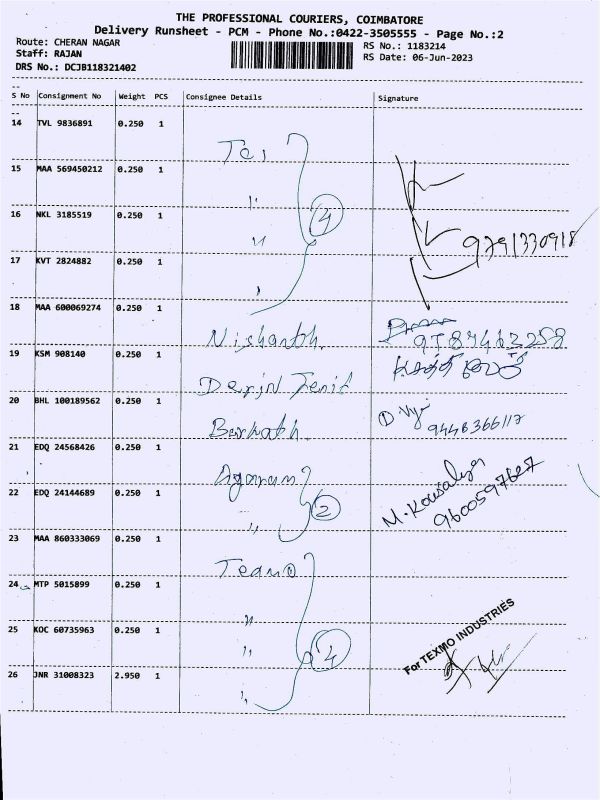 THE PROFESSIONAL COURIERS, COIMBATORE
Delivery Runsheet - PCM - Phone No.:0422-3505555 - Page No.:2
Route: CHERAN NAGAR
RS No.: 1183214
Staff: RAJAN
RS Date: 06-Jun-2023
DRS No.: DCJB118321402
S No Consignment No Weight PCS Consignee Details Signature
14 TVL 9836891 0.250 1
15 MAA 569450212 0.250 1
16 NKL 3185519 0.250 1 4
17 KVT 2824882 0.250 1
18 MAA 600069274 0.250 1 Nishanth.
19 KSM 908140 0.250 1
20 BHL 100189562 0.250 1 Barkath. 9448366117
21 EDQ 24568426 0.250 1
22 EDQ 24144689 0.250 1 2 M. Kowsalya 9600597627
23 MAA 860333069 0.250 1
24 MTP 5015899 0.250 1
25 KOC 60735963 0.250 1 4 For TEXMO INDUSTRIES
26 JNR 31008323 2.950 1